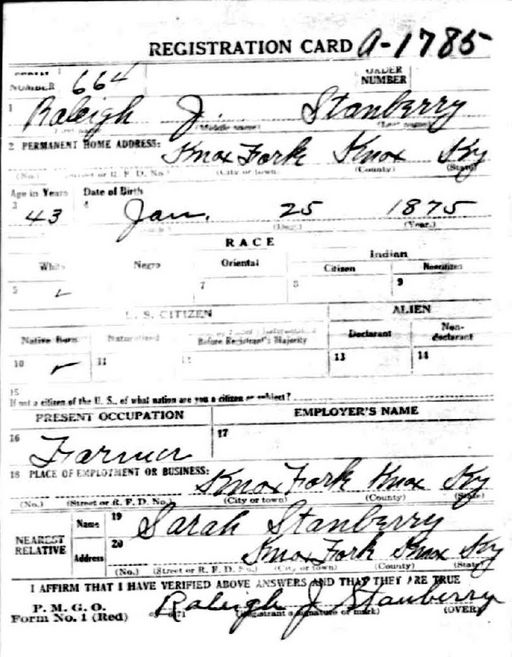 REGISTRATION CARD A-1785
SERIAL NUMBER 664 ORDER NUMBER
1 Raleigh J. Stanberry
(First name) (Middle name) (Last name)
2 PERMANENT HOME ADDRESS: Knox Fork Knox Ky
(No.) (Street or R. F. D. No.) (City or town) (County) (State)
Age in Years Date of Birth
3 43 4 Jan. 25 1875
(Day.) (Year.)
RACE
White Negro Oriental Indian
Citizen Noncitizen
5 ✓ 7 8 9
U. S. CITIZEN ALIEN
Native Born Naturalized Before Registrant's Majority Declarant Non-declarant
10 ✓ 11 12 13 14
15
If not a citizen of the U. S., of what nation are you a citizen or subject?
PRESENT OCCUPATION EMPLOYER'S NAME
16 Farmer 17
18 PLACE OF EMPLOYMENT OR BUSINESS: Knox Fork Knox Ky
(No.) (Street or R. F. D. No.) (City or town) (County) (State)
NEAREST RELATIVE Name 19 Sarah Stanberry
Address 20 Knox Fork Knox Ky
(No.) (Street or R. F. D. No.) (City or town) (County) (State)
I AFFIRM THAT I HAVE VERIFIED ABOVE ANSWERS AND THAT THEY ARE TRUE
P. M. G. O.
Form No. 1 (Red) Raleigh J Stanberry
(Registrant's signature or mark) (OVER)